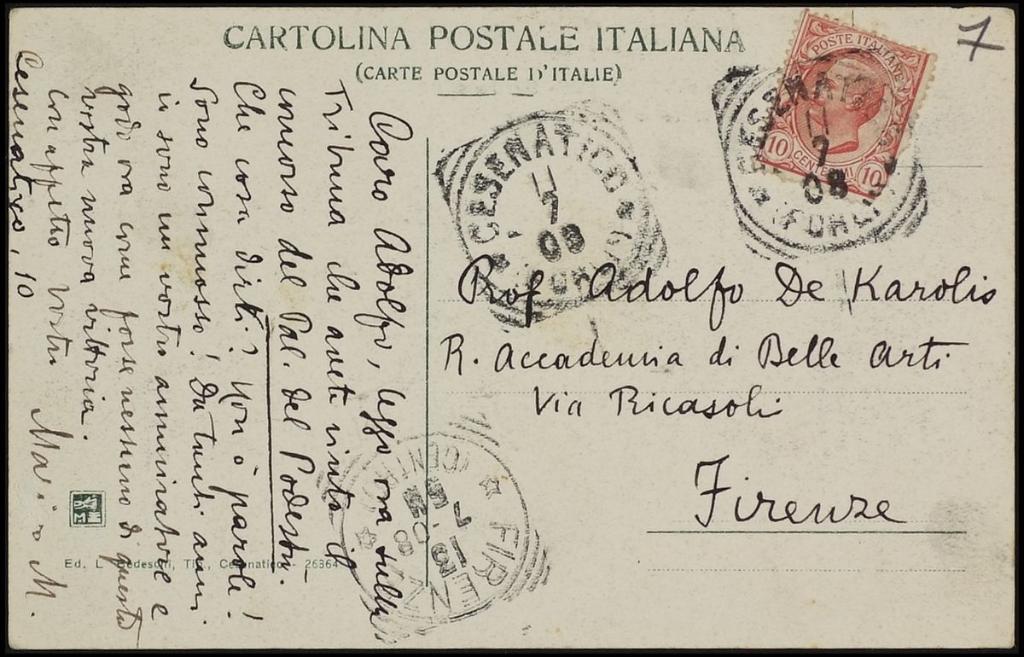 CARTOLINA POSTALE ITALIANA
(CARTE POSTALE D'ITALIE)
7
POSTE ITALIANE
10 CENTESIMI 10
CESENATICO
11
7
08
(FORLI)
CESENATICO
11
7
08
(FORLI)
Prof Adolfo De Karolis
R. Accademia di Belle Arti
Via Ricasoli
Firenze
FIRENZE
Caro Adolfo, leggo ora sulla
Tribuna che avete vinto il
concorso del Pal. del Podestà.
Che cosa dirti? Non ò parole!
Sono commosso! Da tanti anni
io sono un vostro ammiratore e
godo ora come forse nessuno di questa
vostra nuova vittoria.
Con affetto vostro
M.
Cesenatico, 10
Ed. L. Tip. Cesenatico - 26864